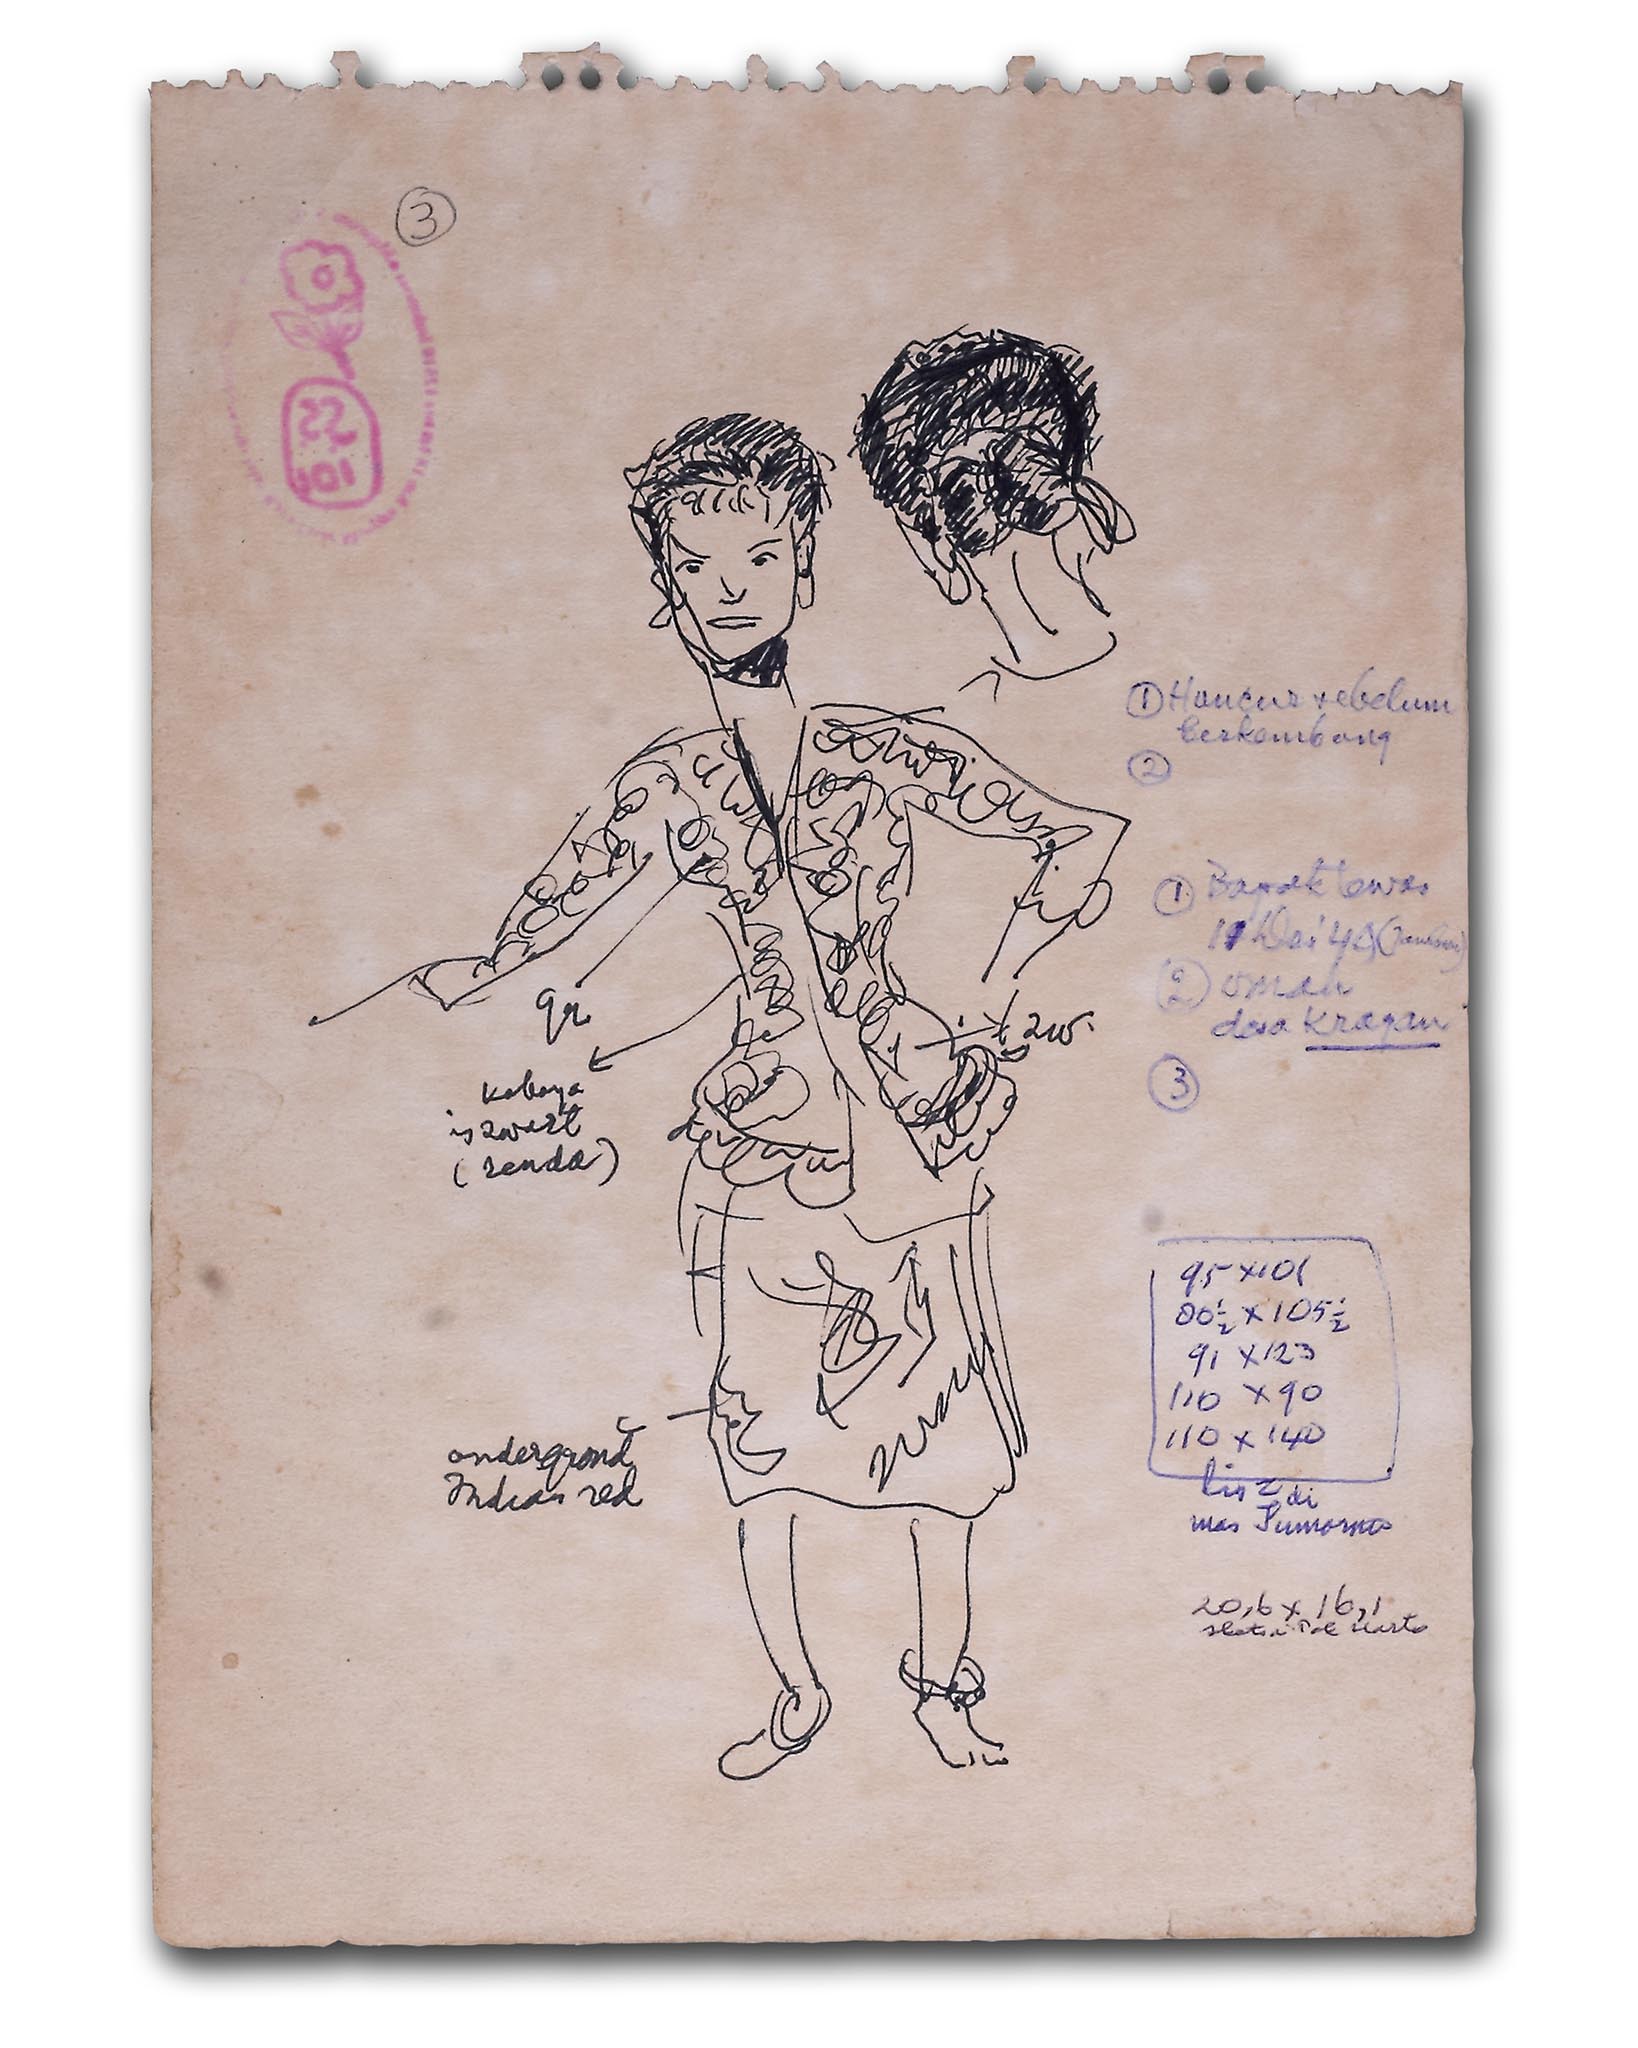 3
101
① Hancur sebelum
berkembang
②
① Bapak tewas
②
desa Kragan
③
gr
zw.
kebaya
is zwart
(renda)
95 x 101
80½ x 105½
91 x 123
110 x 90
110 x 140
di
mas Sumarmo
ondergrond
Indian red
20,6 x 16,1